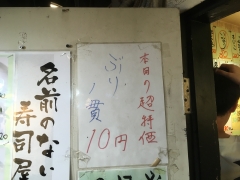 本日の超特価
ぶり
1貫
10円
名前のない
寿司屋